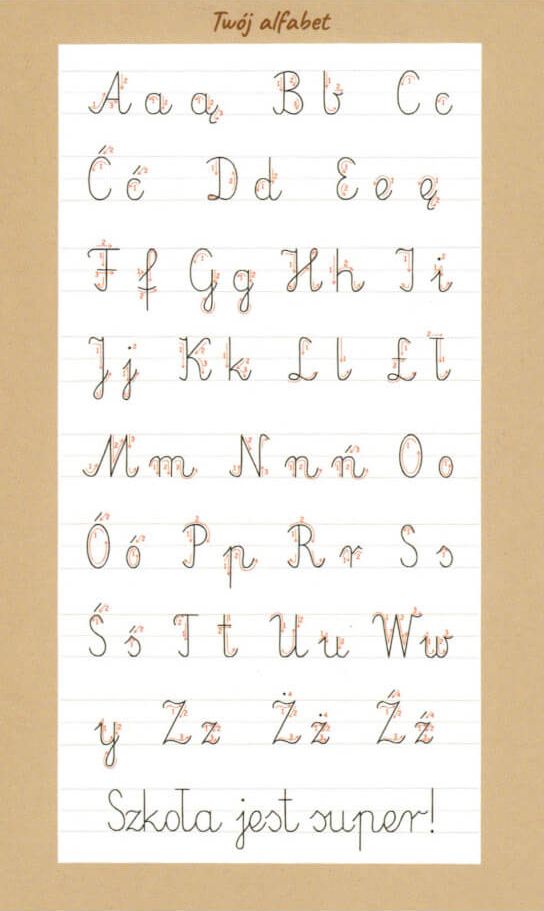 Twój alfabet
A a ą B b C c
Ć ć D d E e ę
F f G g H h I i
J j K k L l Ł ł
M m N n ń O o
Ó ó P p R r S s
Ś ś T t U u W w
y Z z Ż ż Ź ź
Szkoła jest super!